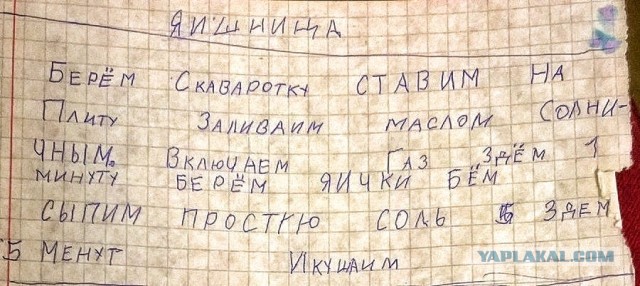 ЯИШНИЩА
БЕРЁМ СКАВАРОТКУ СТАВИМ НА
ПЛИТУ ЗАЛИВАИМ МАСЛОМ СОЛНИ-
ЧНЫМ. ВКЛЮЧАЕМ ГАЗ ЗДЁМ 1
МИНУТУ БЕРЁМ ЯИЧКИ БЁМ
СЫПИМ ПРОСТУЮ СОЛЬ ЗДЕМ
5 МЕНУТ ИКУШАИМ
YAPLAKAL.COM